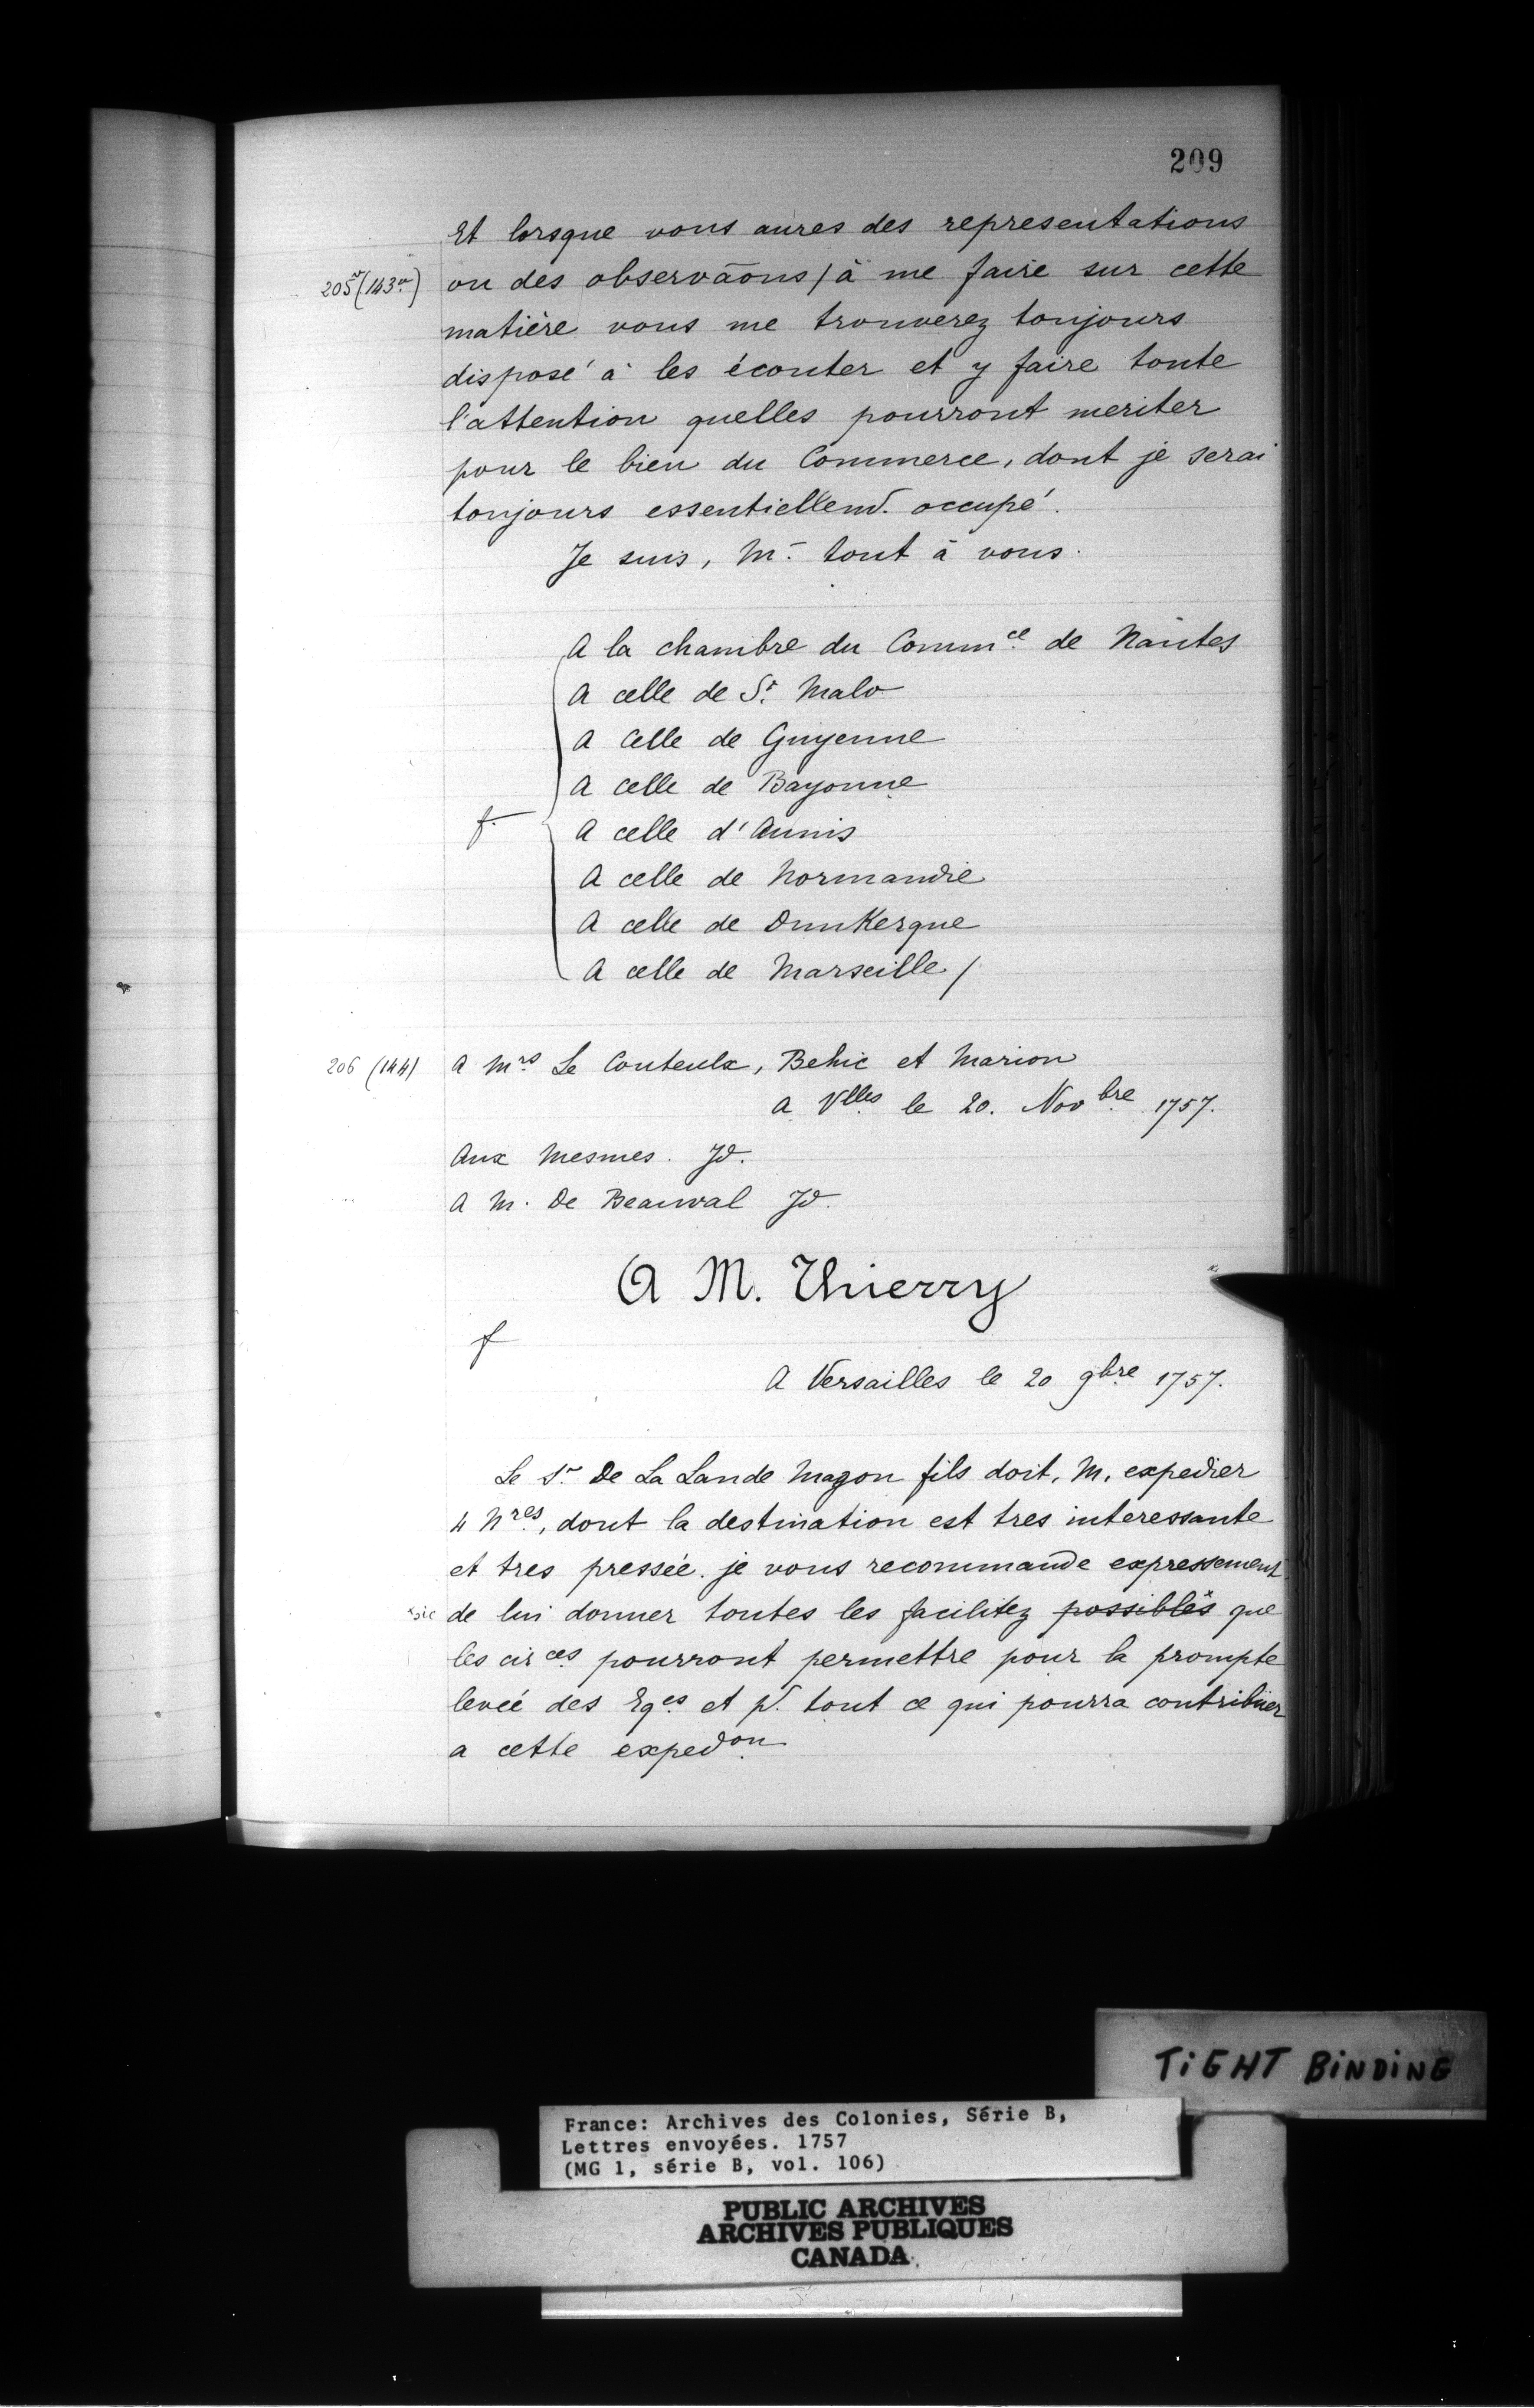 209
Et lorsque vous aures des representations
205 v (143 v) ou des observāons / à me faire sur cette
matière vous me trouverez toujours
disposé à les écouter et y faire toute
l'attention quelles pourront meriter
pour le bien du Commerce, dont je serai
toujours essentiellemt. occupé.
Je suis, Mr. tout à vous.
A la chambre du Commce. de Nantes
A celle de St. Malo
A Celle de Guyenne
A celle de Bayonne
f. A celle d'Aunis
A celle de Normandie
A celle de DunKerque
A celle de Marseille /
206 (144) A Mrs. Le Couteulx, Behic et Marion
A Vlles le 20. Novbre. 1757.
Aux Mesmes. Jd.
A M. De Beauval Jd.
A M. Thierry
f
A Versailles le 20 9bre. 1757.
Le Sr. De La Lande Magon fils doit, M, expedier
4 Nres., dont la destination est tres interessante
et tres pressée. je vous recommande expressement
x sic de lui donner toutes les facilitez possibles x que
les circes. pourront permettre pour la prompte
levée des Eqes. et pr. tout ce qui pourra contribuer
a cette expedon.
TiGHT BiNDiNG
France: Archives des Colonies, Série B,
Lettres envoyées. 1757
(MG 1, série B, vol. 106)
PUBLIC ARCHIVES
ARCHIVES PUBLIQUES
CANADA